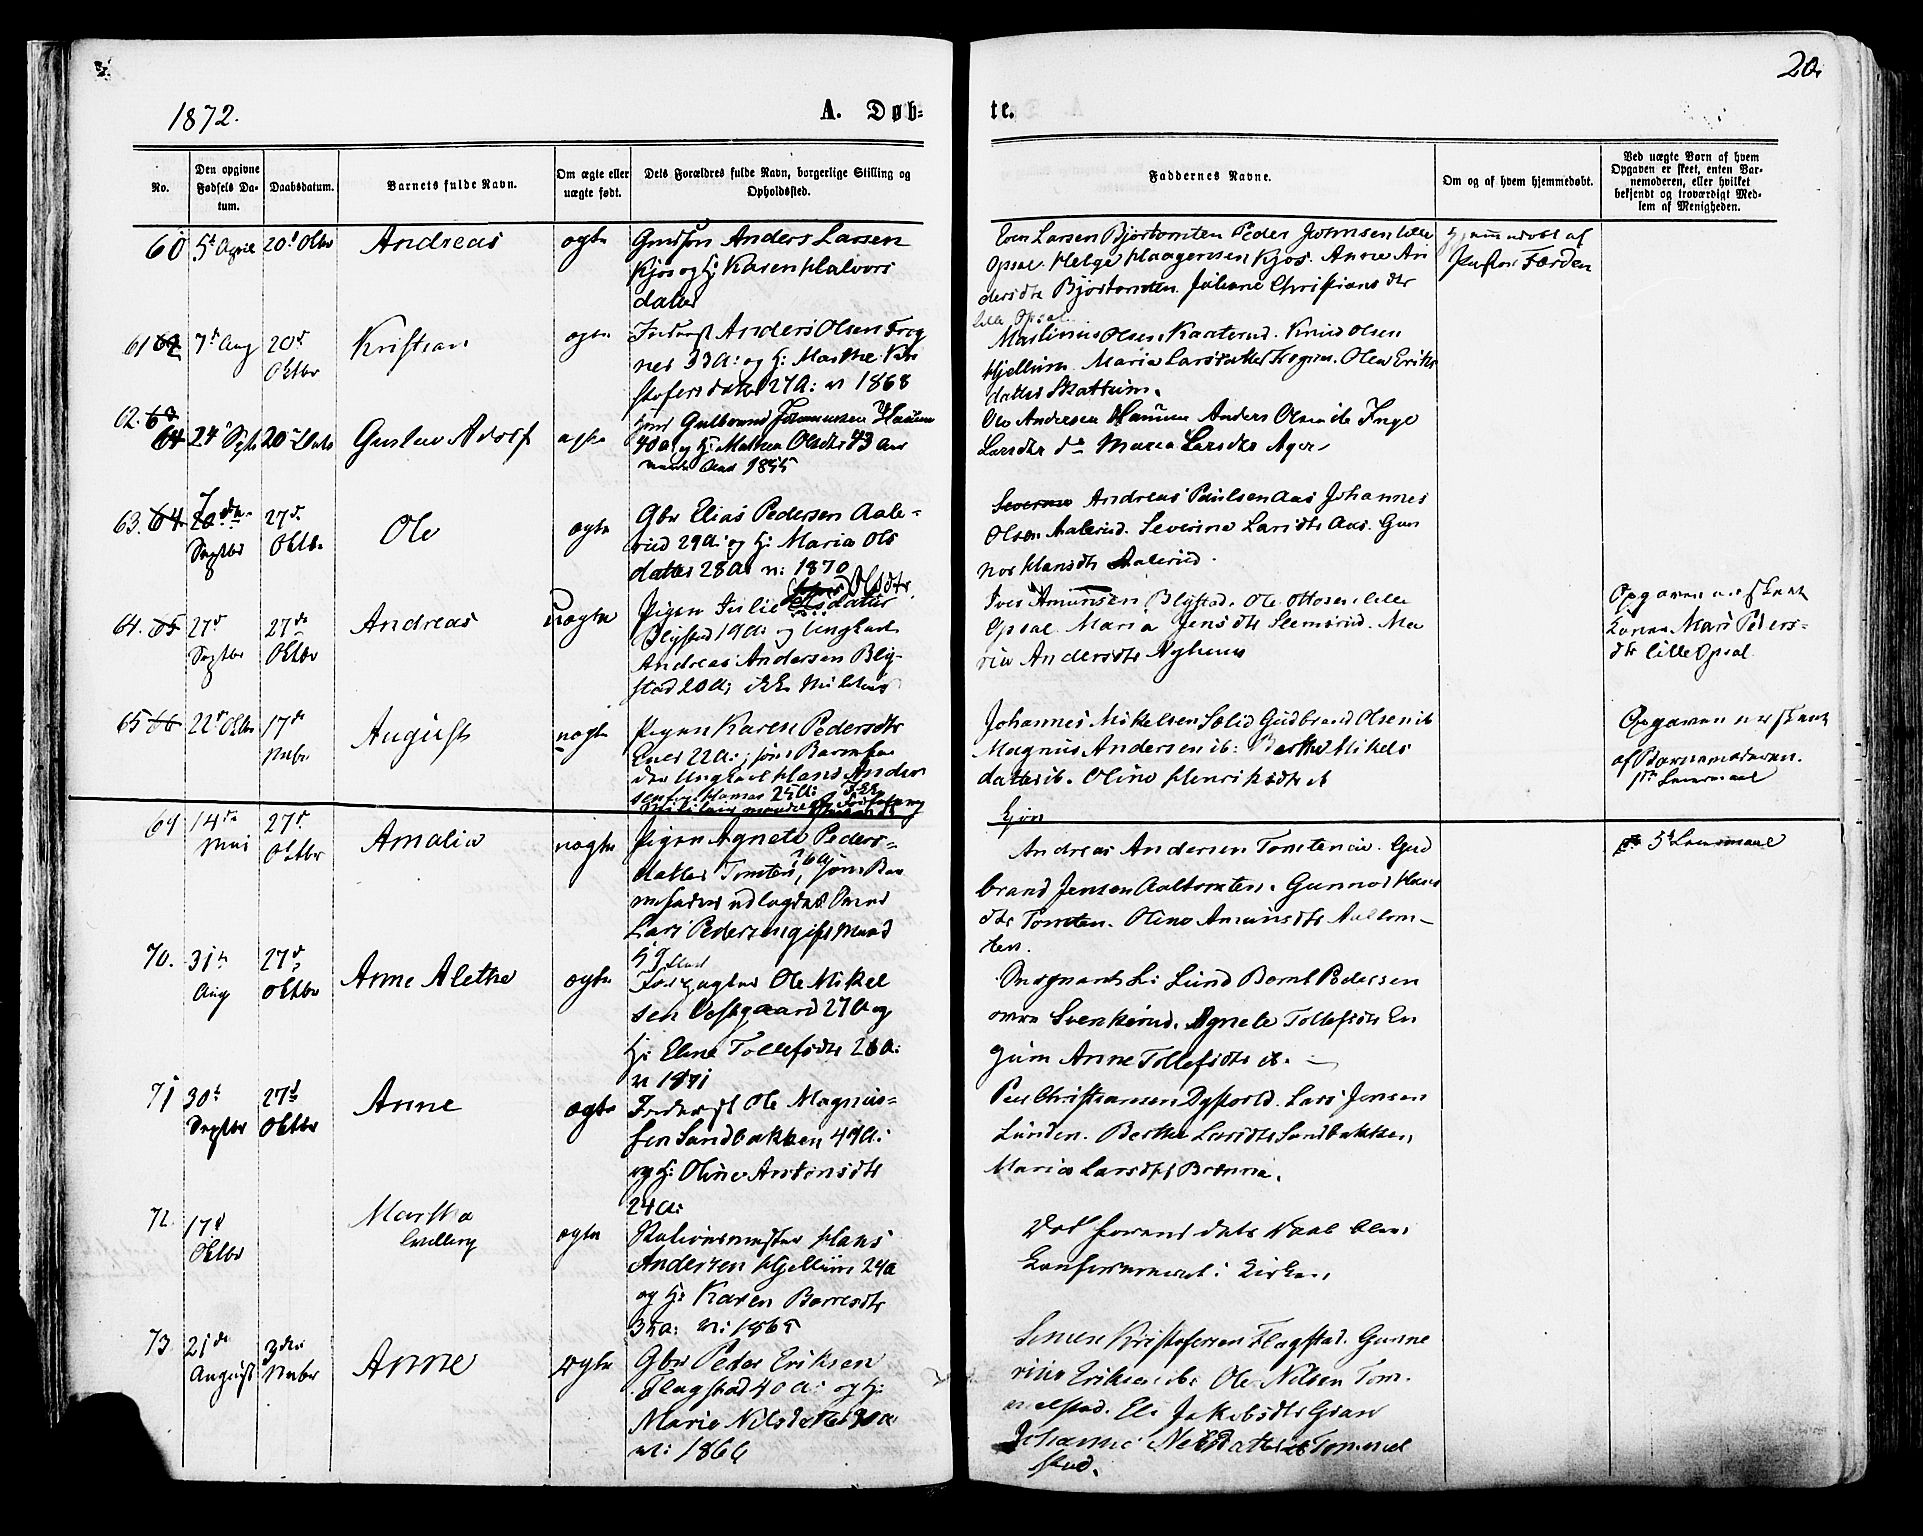 20.
1872.
A. Døb-
te.
No.
Den opgivne Fødsels Da-tum.
Daabsdatum.
Barnets fulde Navn.
Om ægte eller uægte født.
Dets Forældres fulde Navn, borgerlige Stilling og Opholdssted.
Faddernes Navne.
Om og af hvem hjemmedøbt.
Ved uægte Børn af hvem Opgaven er skeet, enten Bar-nemoderen, eller hvilket bekjendt og troværdigt Med-lem af Menigheden.
60 5t April 20d Oktbr Andreas ægte
Anders Larsen
Kjos og H: Karen Halvors
datter
Even Larsen Bjørtomten Peder Johnsen lille
Opsal. Helge Haagensen Kjos. Anne An
dersdtr Bjørtomten. Juliane Christians dtr
lille Opsal.
Hjemmedøbt af
Pastor Færden
61 62 7d Aug 20d Oktbr Kristian ægte
Inderst Anders Olsen Frog
ner 33 A: og H: Marthe Kri
stofersdatter 27 A: v: 1868
Martinius Olsen Kaaterud. Knud Olsen
Hjellum. Maria Larsdatter Frogner. Olea Eriks
datter Skattum.
62. 63 64 24d Septr 20d Octr Gustav Adolf ægte
Gulbrand Johannesen
40 a og H: Mathea Olsdtr 43 Aar
1855
Ole Andersen Anders Olsen ib Inge
Larsdtr do Maria Larsdtr Ager
63. 64. 7de Septbr 27d Oktbr Ole ægte
Gbr Elias Pedersen Aale-
rud 29 A: og H: Maria Ols
datter 28 A: v: 1870
Severine Andreas Paulsen Aas Johannes
Olsen Aalerud. Severine Larsdtr Aas. Gun
nor Hansdtr Aalerud.
64. 65 27d Septbr 27de Oktbr Andreas Uægte
Pigen Julie Olsdtr.
Blystad 19 A: og Ungkarl
Andreas Andersen Bly-
stad 20 A: ikke Militær
Iver Amundsen Blystad. Ole Ottosen lille
Opsal. Maria Jensdtr Slemsrud. Ma
ria Andersdtr Nyhuus
Opgaven er skeet
Konen Mari Peders-
dtr lille Opsal.
65 66 22d Oktbr 17de Nvbr August uægte
Pigen Karen Pedersdtr
22 A: som Barnefa
der Ungkarl Hans Ander
sen 25 A:
Johannes Mikelsen Sælid Gudbrand Olsen ib
Magnus Andersen ib: Berthe Mikels
datter ib. Oline Henriksdtr ib
Opgaven er skeet
af Barnemoderen.
1ste Leiermaal
69 14de Mai 27d Oktbr Amalia uægte
Pigen Agnete Peders-
datter Tomten, som Bar
nefader udlagdes
Lars Pedersen gift Mand
Kjøn
Andreas Andersen Tomten. Gud
brand Jensen Aaltomten. Gunnor Hans
dtr Tomten. Oline Amundsdtr Aaltom-
ten.
5t Leiermaal
70. 31te Aug 27d Oktbr Anne Alethe ægte
Forpagter Ole Mikel
sen Vestgaard 27 A og
H: Eline Tollefsdtr 26 A:
v: 1871
Lund Bernt Pedersen
øvre Svenkerud. Agnete Tollefsdtr En
gum Anne Tollefsdtr ib.
71 30te Septbr 27d Oktbr Anne ægte
Inderst Ole Magnus-
sen Sandbakken 49 A:
og H: Oline Antonsdtr
24 A:
Peer Christiansen Dystvold. Lars Jensen
Lunden. Berthe Larsdtr Sandbakken,
Maria Larsdtr Brænna.
72. 17d Oktbr Martha ægte
Stationsmester Hans
Andersen Hjellum 29 A
og H: Karen Børresdtr
35 A: v: 1865
Daab blev
Konfirmeret i Kirken,
73. 21de August 3die Nvbr Anne ægte
Gbr Peder Eriksen
Flagstad 40 A: og H:
Marie Nilsdatter 30 A
v: 1866
Simen Kristofersen Flagstad. Gunne
rius Eriksen ib. Ole Nilsen Tom-
melstad. Eli Jakobsdtr Gran
Johanne Nilsdatter Tommel
stad.